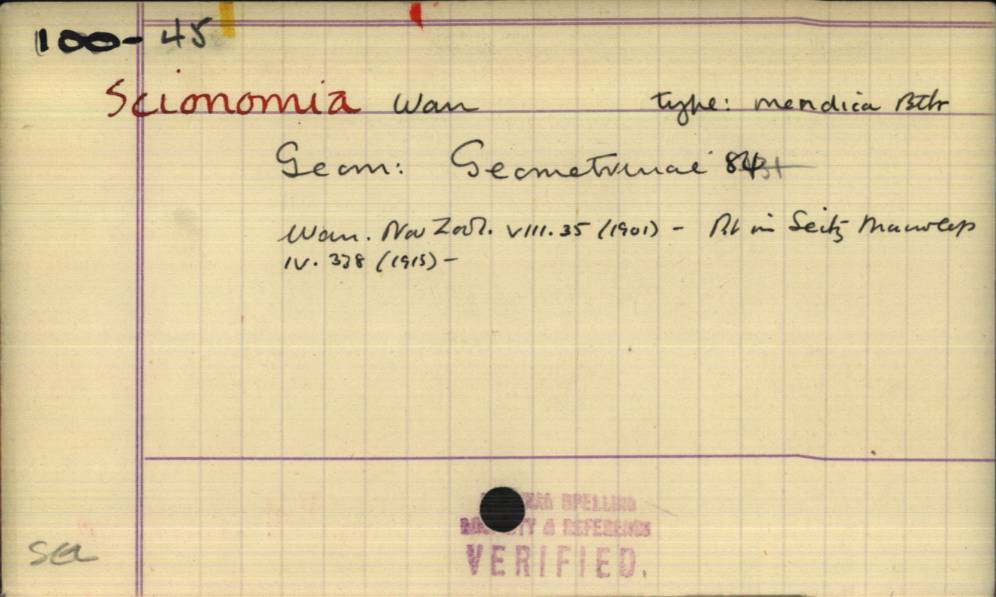 100-45
Scionomia Warr type: mendica Btlr
Geom: Geometrinae 84
Warr. Nov Zool. VIII. 35 (1901) - Prt in Seitz Macrolep
IV. 338 (1915) -
SPELLING
& REFERENCE
VERIFIED.
sca